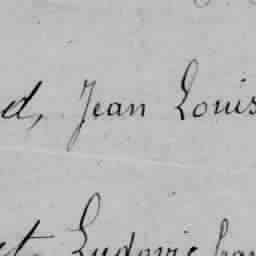 d, Jean Louis
et Ludovic